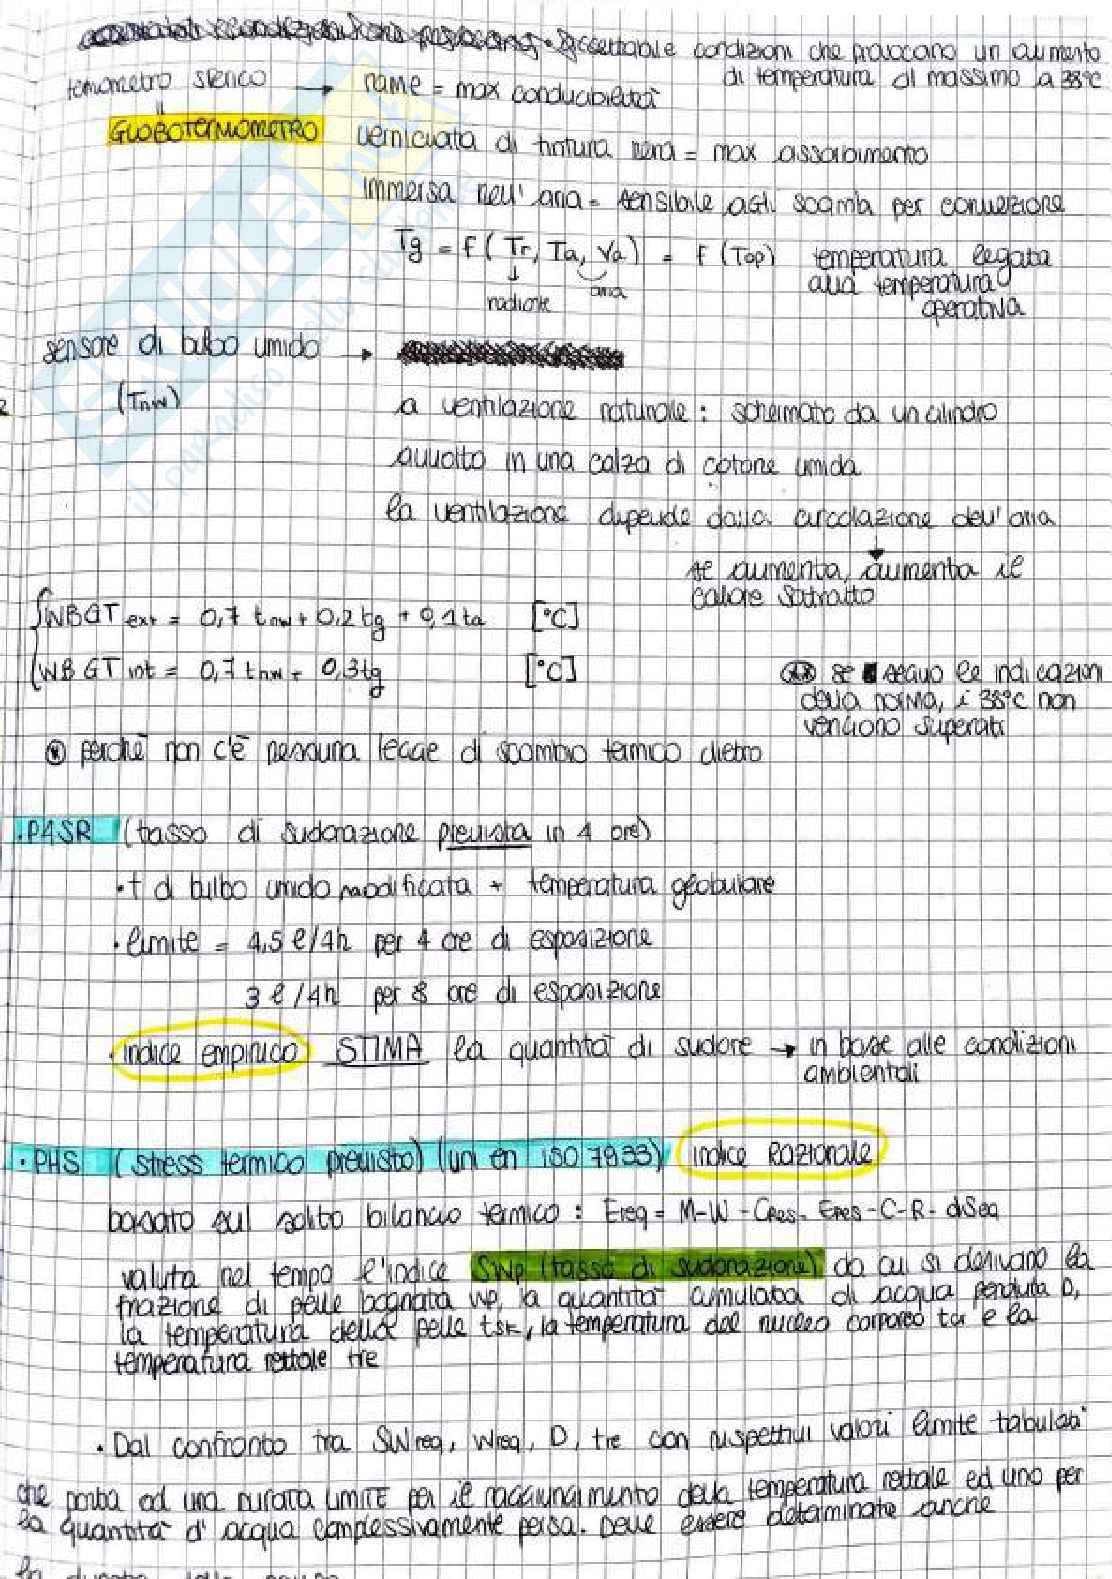 Accettabile condizioni che provocano un aumento
di temperatura di massimo a 38°C
termometro sferico → rame = max conducibilità
GLOBOTERMOMETRO
verniciata di tintura nera = max assorbimento
immersa nell'aria = sensibile agli scambi per convezione
Tg = f (Tr, Ta, Va) = f (Top) temperatura legata
alla temperatura
operativa
radiante
aria
sensore di bulbo umido →
(Tnw)
a ventilazione naturale : schermato da un cilindro
avvolto in una calza di cotone umida
la ventilazione dipende dalla circolazione dell'aria
se aumenta, aumenta il
calore sottratto
WBGT ext = 0,7 tnw + 0,2 tg + 0,1 ta [°C]
WBGT int = 0,7 tnw + 0,3 tg [°C]
se seguo le indicazioni
della norma, i 38°C non
vengono superati
perché non c'è nessuna legge di scambio termico dietro
• P4SR (tasso di sudorazione prevista in 4 ore)
• t di bulbo umido modificata + temperatura globulare
• limite = 4,5 l/4h per 4 ore di esposizione
3 l/4h per 8 ore di esposizione
• indice empirico STIMA la quantità di sudore → in base alle condizioni
ambientali
• PHS (stress termico previsto) (uni en iso 7933) indice RAZIONALE
basato sul solito bilancio termico : Ereq = M-W - Cres - Eres - C - R - dSeq
valuta nel tempo l'indice SWp (tasso di sudorazione) da cui si derivano la
frazione di pelle bagnata wp, la quantità cumulata di acqua perduta D,
la temperatura della pelle tsk, la temperatura del nucleo corporeo tcr e la
temperatura rettale tre
• Dal confronto tra SWreq, Wreq, D, tre con rispettivi valori limite tabulati
che porta ad una durata LIMITE per il raggiungimento della temperatura rettale ed uno per
la quantità d'acqua complessivamente persa. Deve essere determinate anche
la durata delle